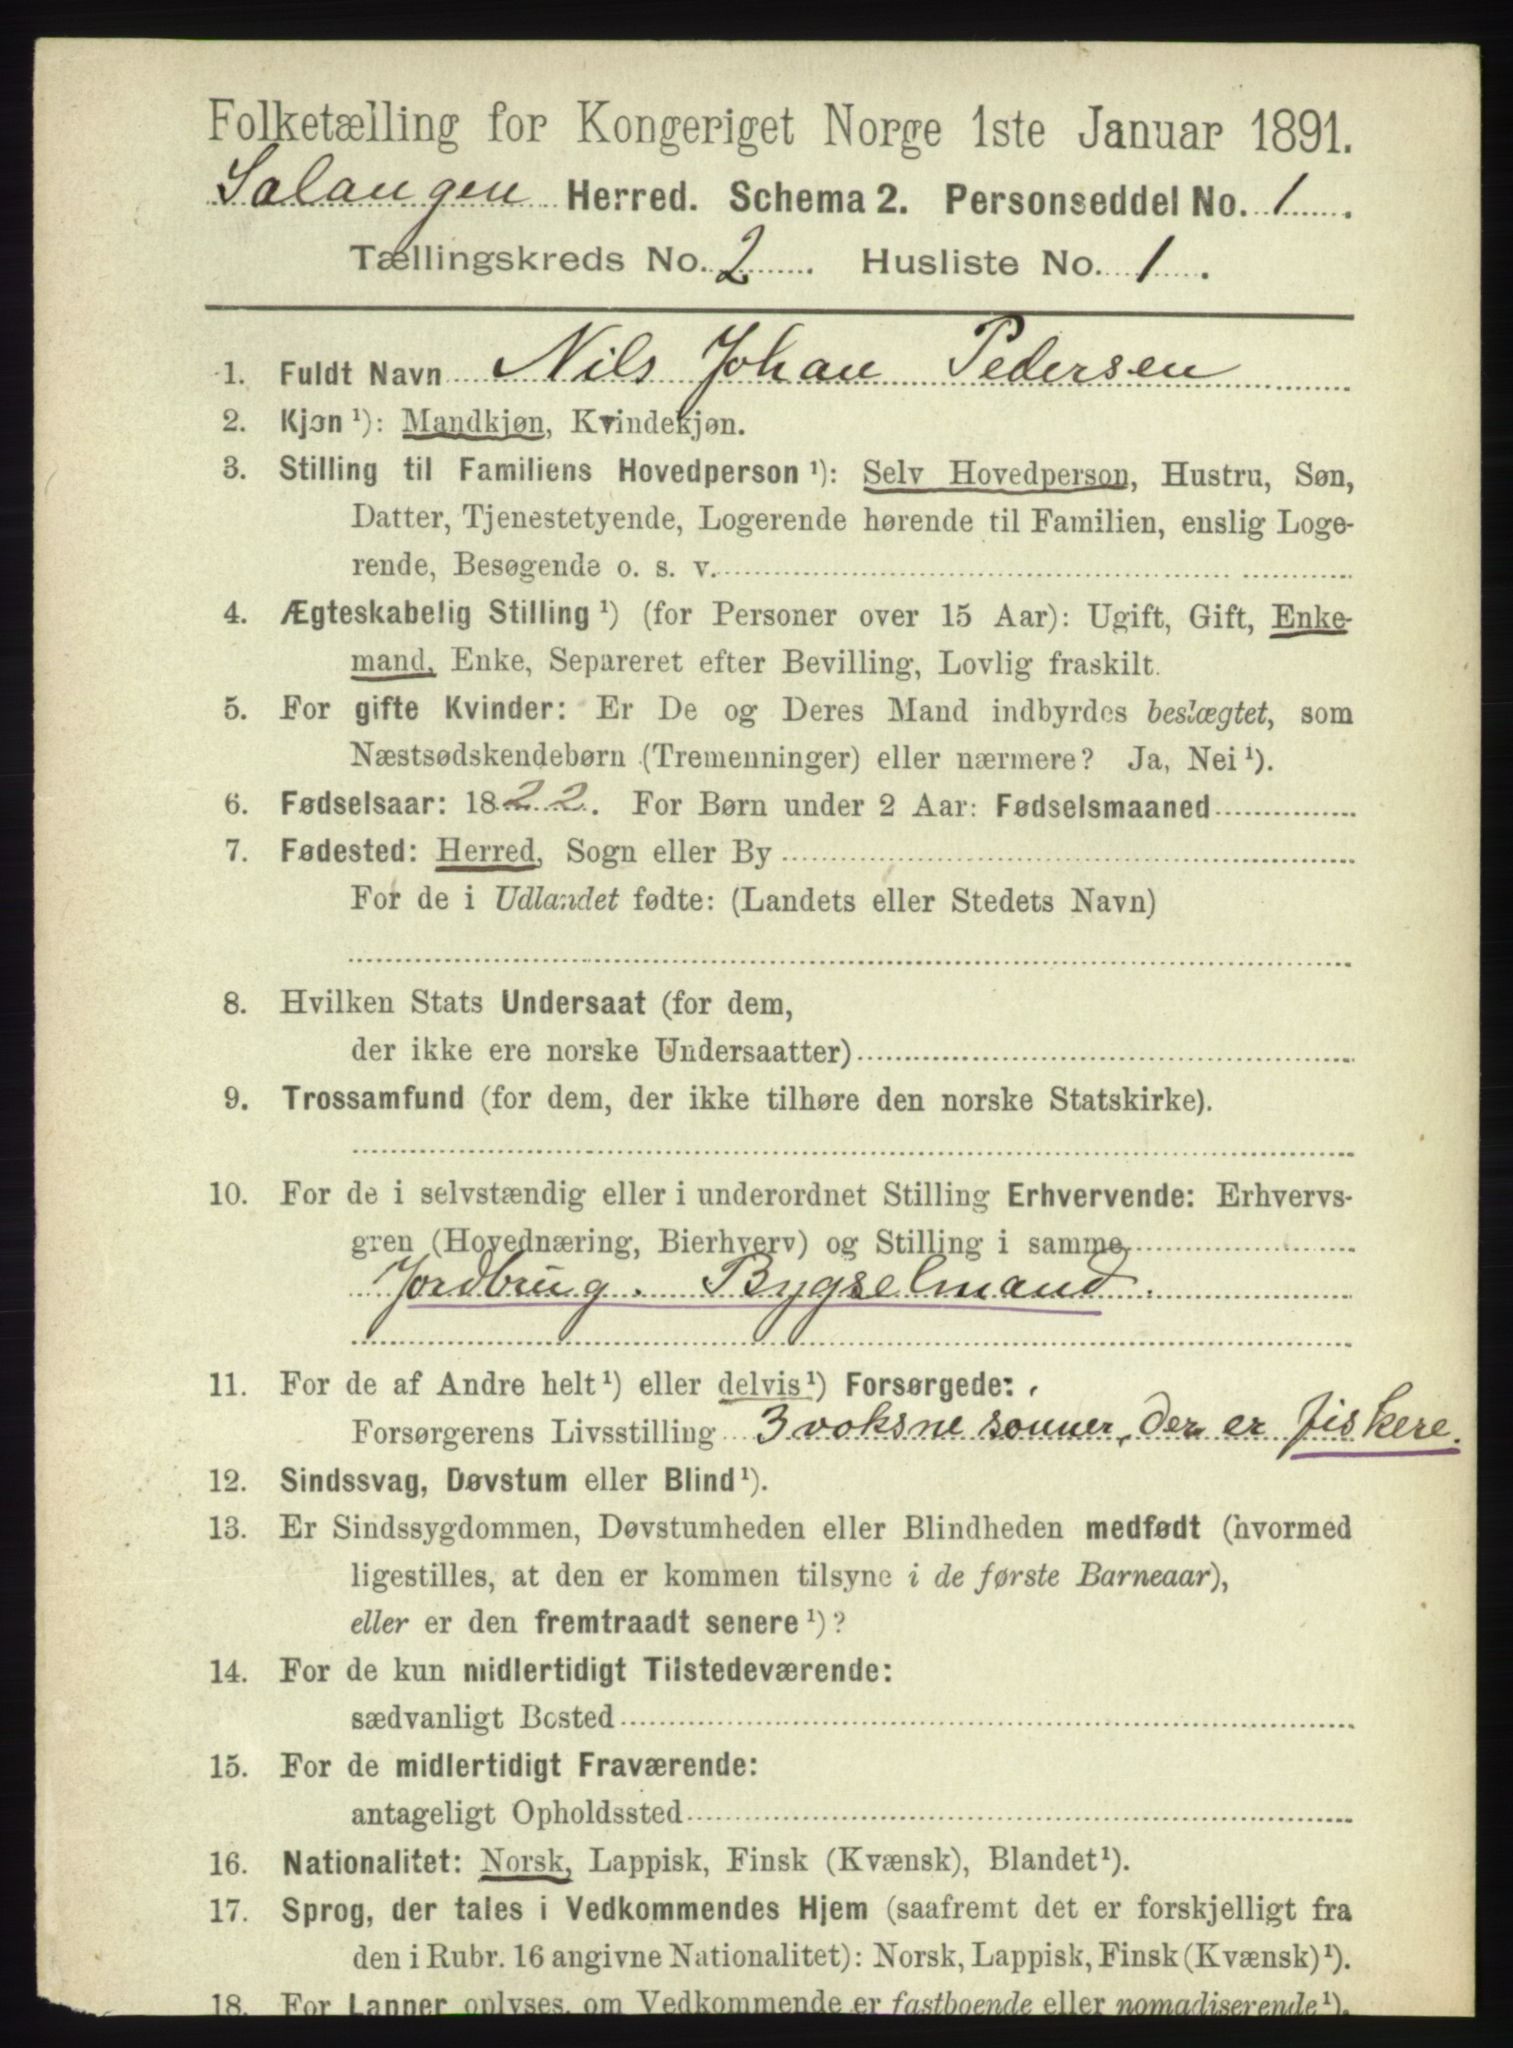 Folketælling for Kongeriget Norge 1ste Januar 1891.
Salangen Herred. Schema 2. Personseddel No. 1.
Tællingskreds No. 2. Husliste No. 1.
1. Fuldt Navn Nils Johan Pedersen
2. Kjøn ¹): Mandkjøn, Kvindekjøn.
3. Stilling til Familiens Hovedperson ¹): Selv Hovedperson, Hustru, Søn,
Datter, Tjenestetyende, Logerende hørende til Familien, enslig Loge-
rende, Besøgende o. s. v.
4. Ægteskabelig Stilling ¹) (for Personer over 15 Aar): Ugift, Gift, Enke-
mand, Enke, Separeret efter Bevilling, Lovlig fraskilt.
5. For gifte Kvinder: Er De og Deres Mand indbyrdes beslægtet, som
Næstsødskendebørn (Tremenninger) eller nærmere? Ja, Nei ¹).
6. Fødselsaar: 1822. For Børn under 2 Aar: Fødselsmaaned
7. Fødested: Herred, Sogn eller By
For de i Udlandet fødte: (Landets eller Stedets Navn)
8. Hvilken Stats Undersaat (for dem,
der ikke ere norske Undersaatter)
9. Trossamfund (for dem, der ikke tilhøre den norske Statskirke).
10. For de i selvstændig eller i underordnet Stilling Erhvervende: Erhvervs-
gren (Hovednæring, Bierhverv) og Stilling i samme
Jordbrug. Bygselmand.
11. For de af Andre helt ¹) eller delvis ¹) Forsørgede:
Forsørgerens Livsstilling 3 voksne sønner, der er fiskere.
12. Sindssvag, Døvstum eller Blind ¹).
13. Er Sindssygdommen, Døvstumheden eller Blindheden medfødt (hvormed
ligestilles, at den er kommen tilsyne i de første Barneaar),
eller er den fremtraadt senere ¹)?
14. For de kun midlertidigt Tilstedeværende:
sædvanligt Bosted
15. For de midlertidigt Fraværende:
antageligt Opholdssted
16. Nationalitet: Norsk, Lappisk, Finsk (Kvænsk), Blandet ¹).
17. Sprog, der tales i Vedkommendes Hjem (saafremt det er forskjelligt fra
den i Rubr. 16 angivne Nationalitet): Norsk, Lappisk, Finsk (Kvænsk) ¹).
18. For Lapper oplyses, om Vedkommende er fastboende eller nomadiserende ¹).